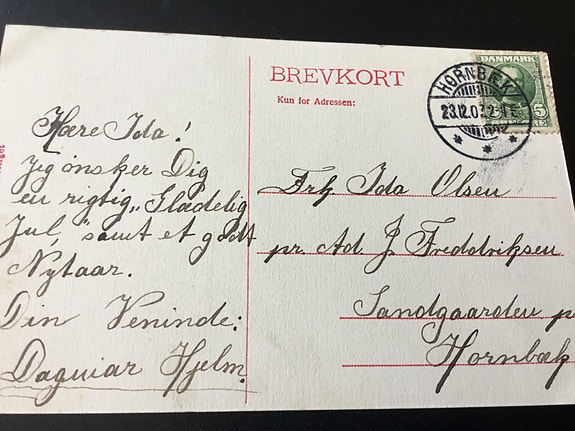 BREVKORT
Kun for Adressen:
DANMARK
5
HORNBÆK
23.12.07.
Kære Ida!
Jeg ønsker Dig
en rigtig „Glædelig
Jul,“ samt et godt
Nytaar.
Din Veninde:
Dagmar Hjelm.
Frk Ida Olsen
pr. Ad. J. Freddriksen
Sandgaarden
Hornbæk